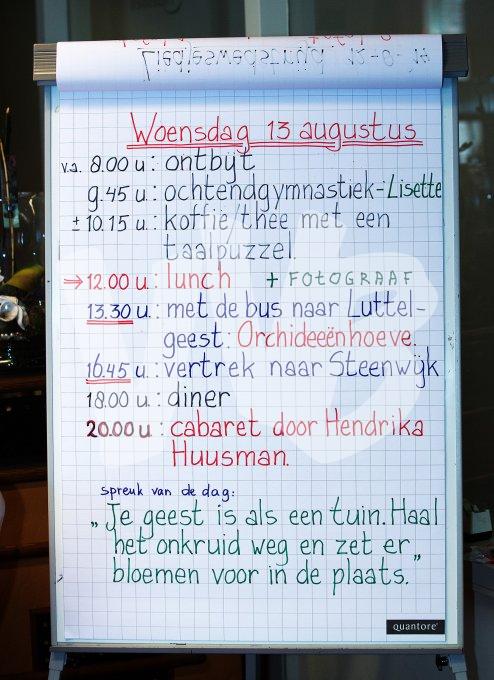 Liedjeswedstrijd 12-8-'14
Woensdag 13 augustus
v.a. 8.00 u.: ontbijt
9.45 u.: ochtendgymnastiek-Lisette
± 10.15 u.: koffie/thee met een
taalpuzzel.
⇒ 12.00 u.: lunch + FOTOGRAAF
13.30 u.: met de bus naar Luttel-
geest: Orchideeënhoeve.
16.45 u.: vertrek naar Steenwijk
18.00 u.: diner
20.00 u.: cabaret door Hendrika
Huusman.
spreuk van de dag:
„Je geest is als een tuin. Haal
het onkruid weg en zet er
bloemen voor in de plaats.”
quantore